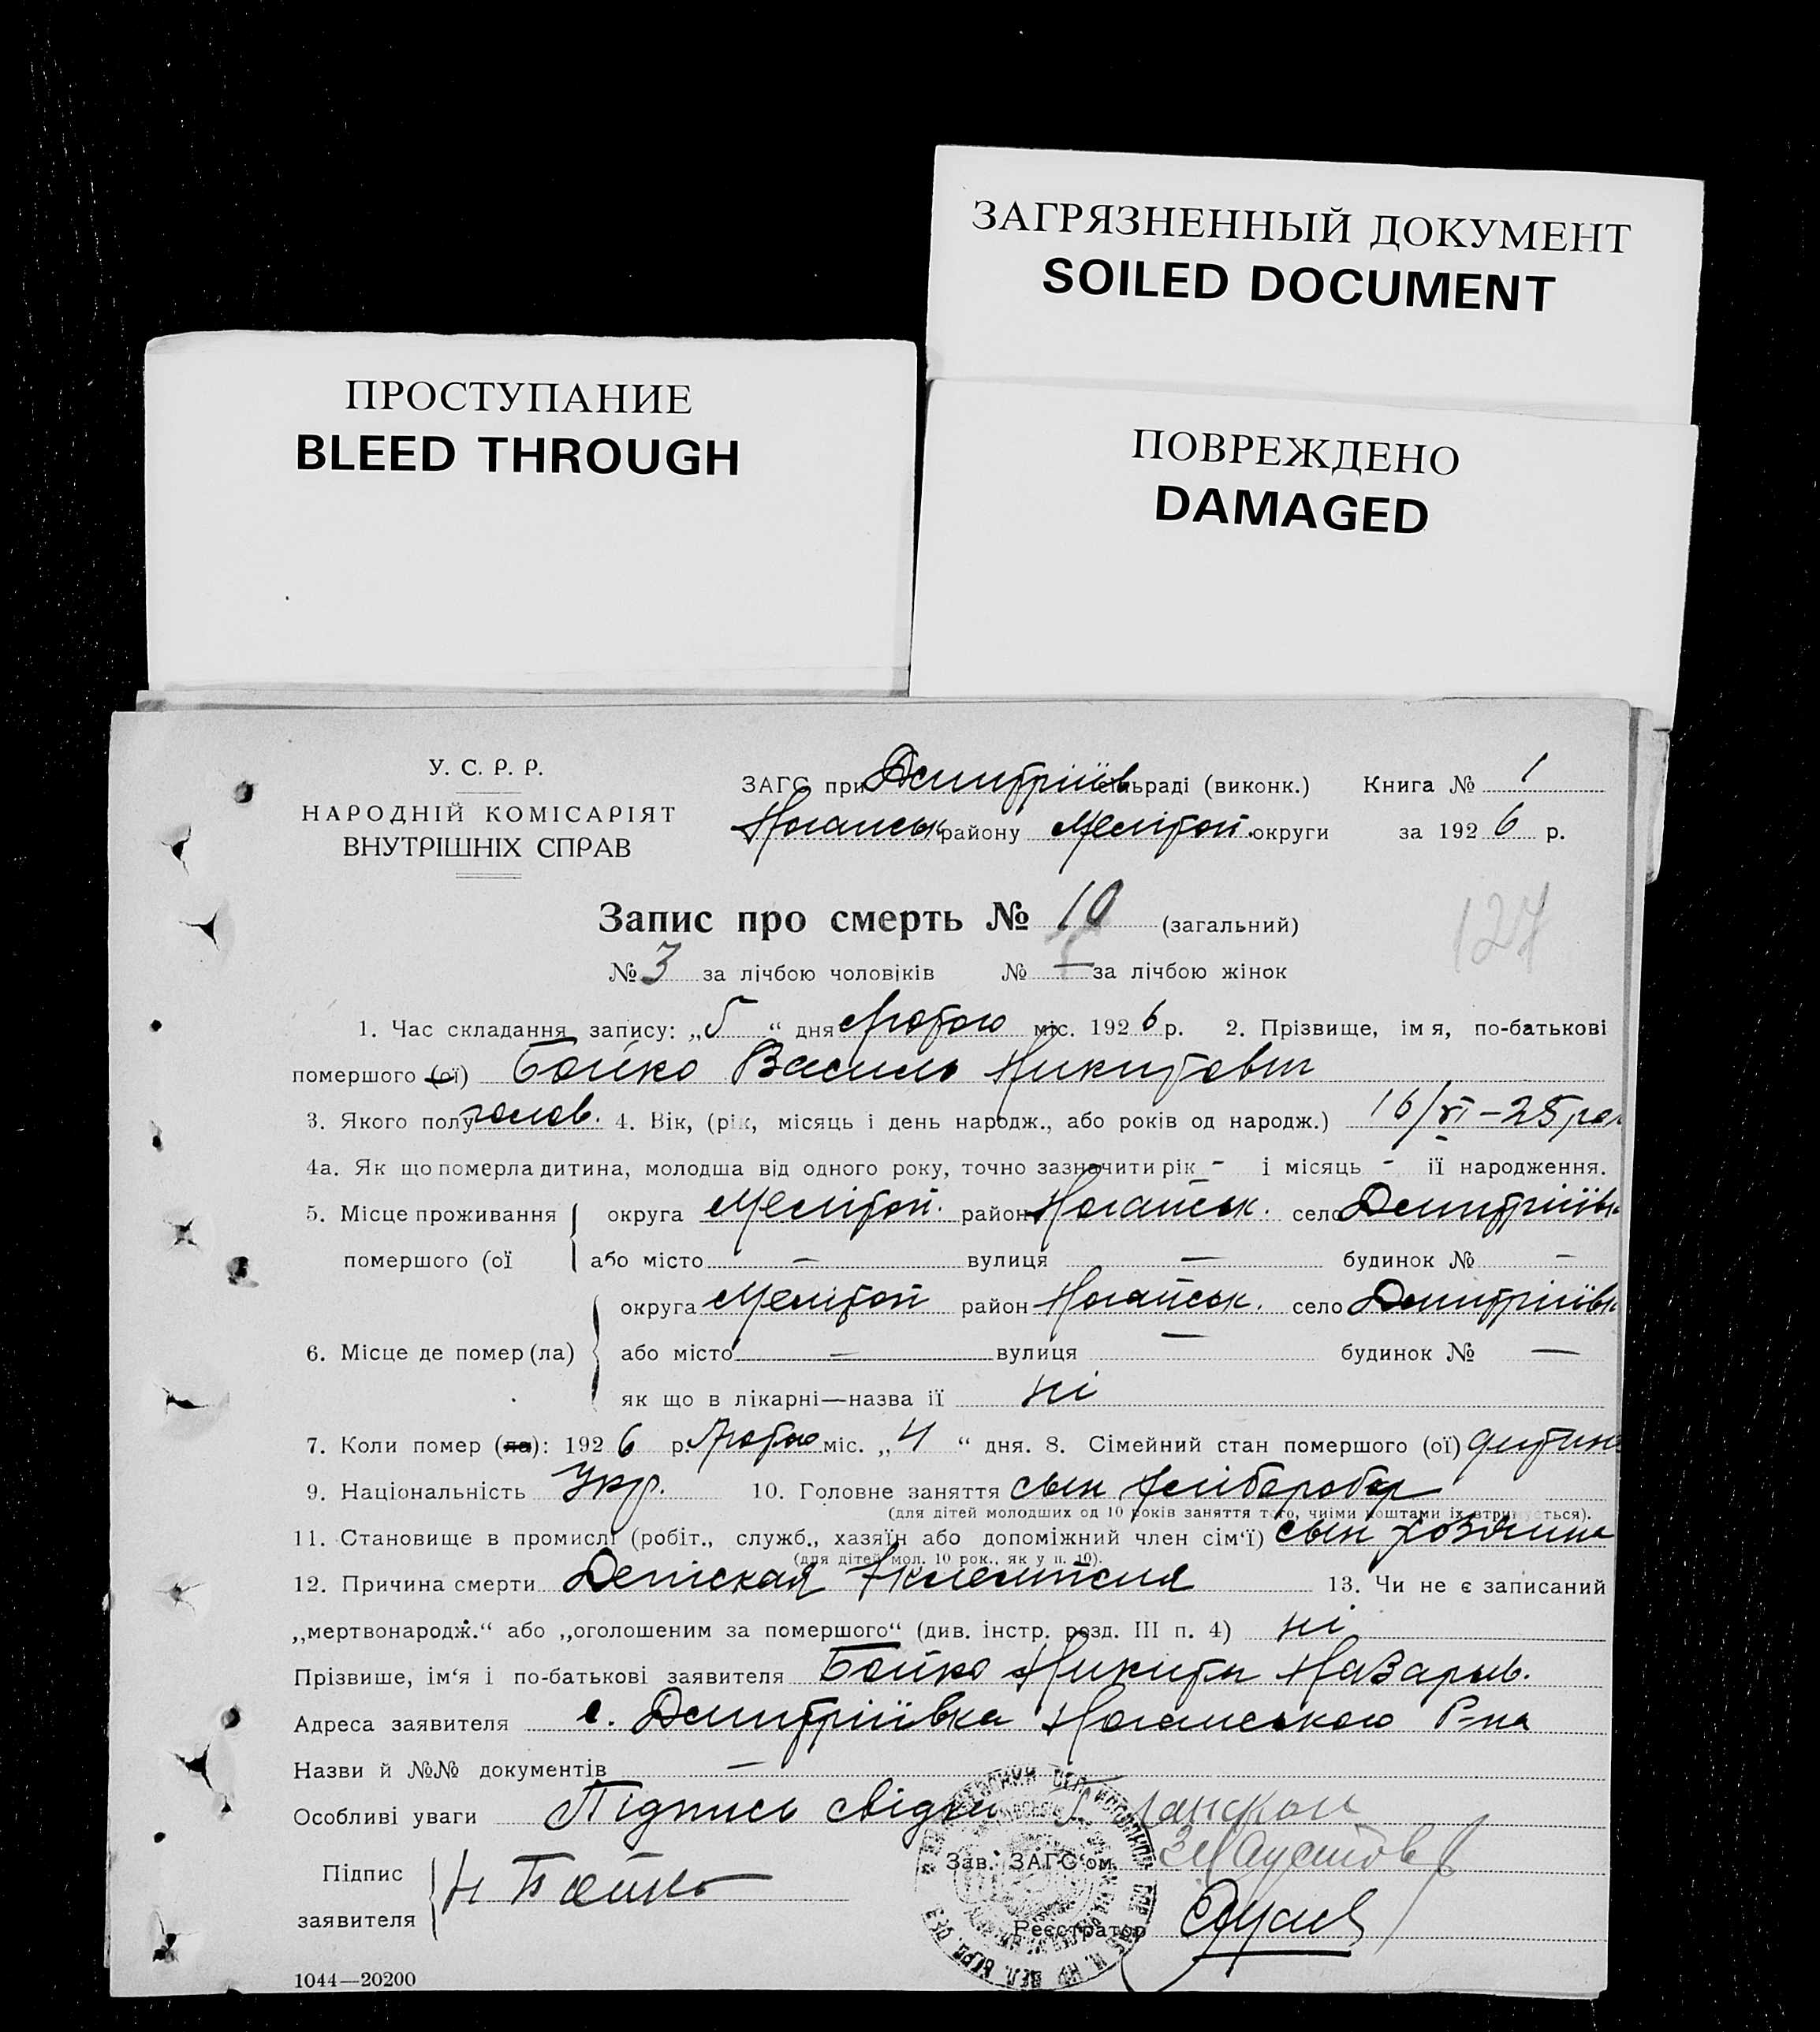 ЗАГРЯЗНЕННЫЙ ДОКУМЕНТ
SOILED DOCUMENT
ПРОСТУПАНИЕ
BLEED THROUGH
ПОВРЕЖДЕНО
DAMAGED
У. С. Р. Р.
НАРОДНІЙ КОМІСАРІЯТ
ВНУТРІШНІХ СПРАВ
ЗАГС при Дмитріїв сільраді (виконк.) Книга № 1
Ногайськ району Мелітоп. округи за 1926 р.
Запис про смерть № 10 (загальний)
127
№ 3 за лічбою чоловіків № — за лічбою жінок
1. Час складання запису: „5“ дня Лютого міс. 1926 р. 2. Прізвище, імя, по-батькові
помершого (ої) Бойко Василь Никитович
3. Якого полу чолов. 4. Вік, (рік, місяць і день народж., або років од народж.) 16/VI – 25 рок
4а. Як що померла дитина, молодша від одного року, точно зазначити рік - і місяць - її народження.
5. Місце проживання округа Мелітоп. район Ногайськ. село Дмитріївк
помершого (ої або місто — вулиця — будинок № —
округа Мелітоп район Ногайськ. село Дмитріївк
6. Місце де помер (ла) або місто — вулиця — будинок № —
як що в лікарні—назва її ні
7. Коли помер (ла): 1926 р. Лютого міс. „4“ дня. 8. Сімейний стан помершого (ої) дитин
9. Національність Укр. 10. Головне заняття сын хлібороба
(для дітей молодших од 10 років заняття того, чиїми коштами їх втримується).
11. Становище в промислі (робіт., служб., хазяїн або допоміжний член сім‘ї) сын хозяина
(для дітей мол. 10 рок., як у п. 10).
12. Причина смерти Детская 13. Чи не є записаний
„мертвонародж.“ або „оголошеним за помершого“ (див. інстр. розд. III п. 4) ні
Прізвише, ім‘я і по-батькові заявителя Бойко Никита Назаров.
Адреса заявителя с. Дмитріївка Ногайського Р-на
Назви й №№ документів —
Особливі уваги Підпись свідки
Підпис
заявителя Н Бойко
Зав. ЗАГС‘ом
Реєстратор
1044—20200